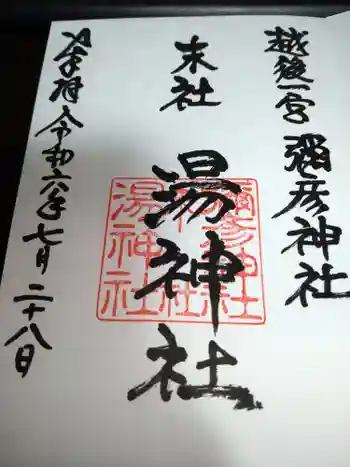 越後一宮 彌彦神社
末社 湯神社
彌彦神社
末社
湯神社
奉拝 令和六年七月二十八日